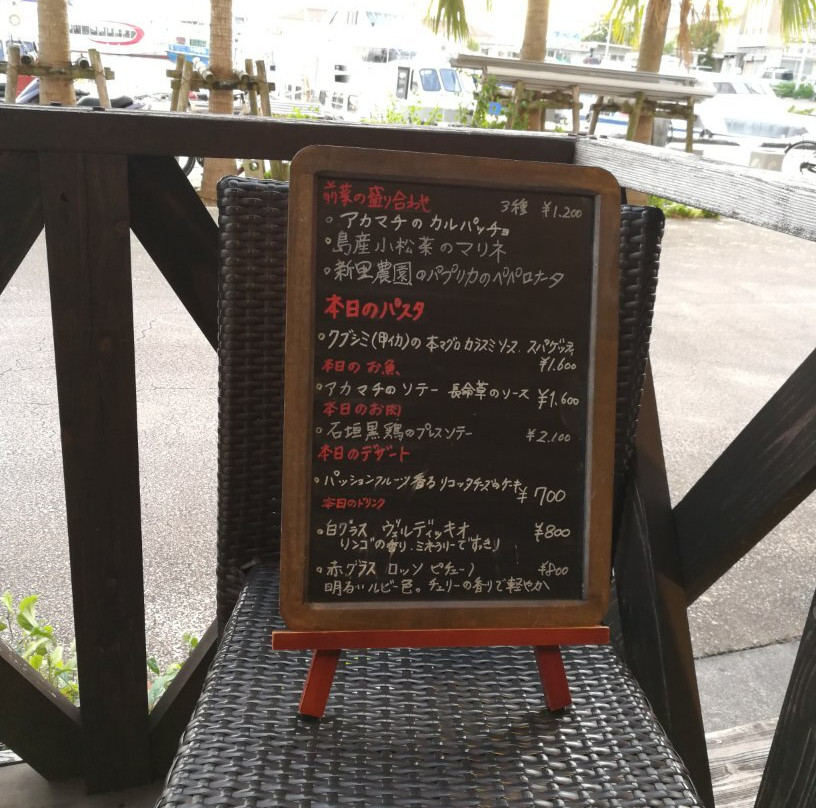 前菜の盛り合わせ 3種 ¥1.200
○アカマチのカルパッチョ
○島産小松菜のマリネ
○新里農園のパプリカのペペロナータ
本日のパスタ
○クブシミ(甲イカ)の本マグロカラスミソース.スパゲッティ
¥1.600
本日のお魚
○アカマチのソテー 長命草のソース ¥1.600
本日のお肉
○石垣黒鶏のプレスソテー ¥2.100
本日のデザート
○パッションフルーツ香るリコッタチーズのケーキ ¥700
本日のドリンク
○白グラス ヴェルディッキオ ¥800
リンゴの香り.ミネラリーですっきり
○赤グラス ロッソ ピチェーノ ¥800
明るいルビー色。チェリーの香りで軽やか